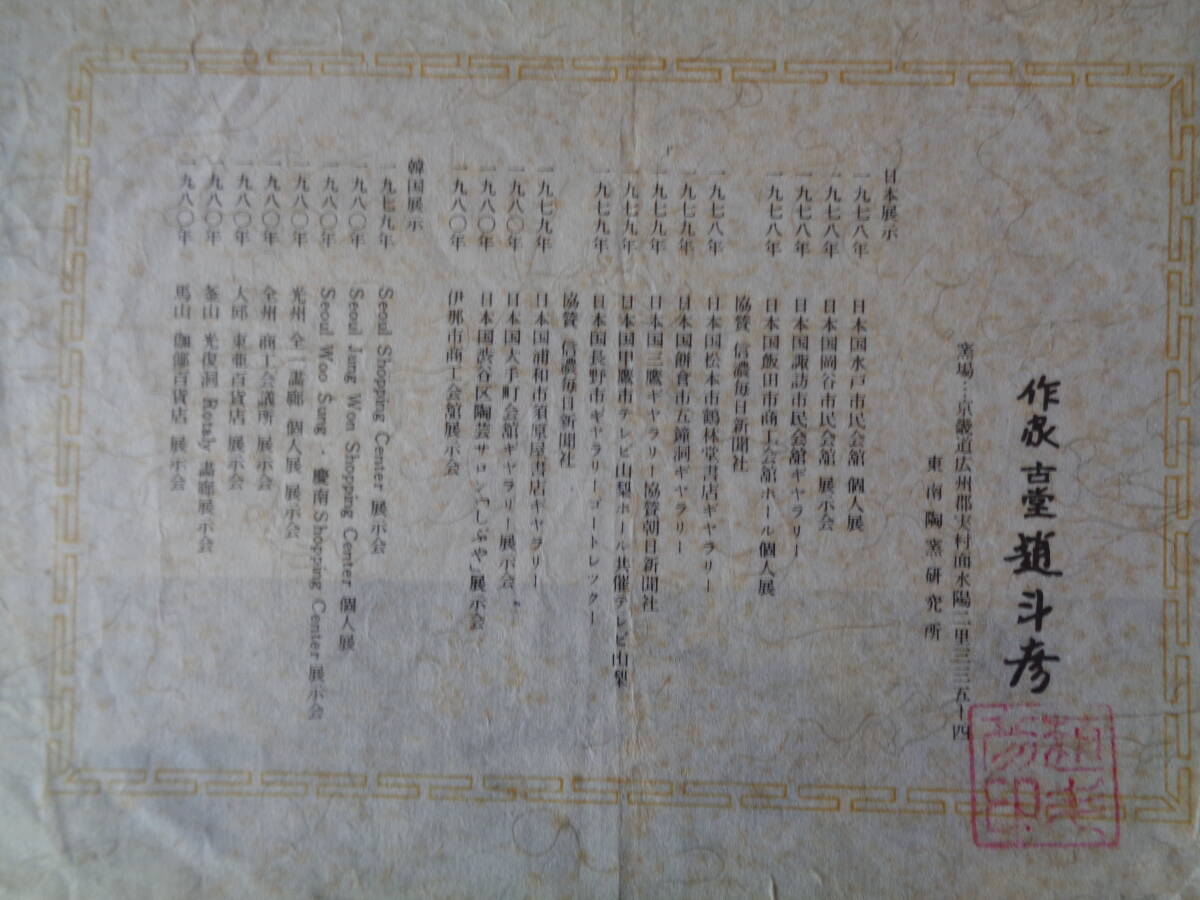 作家 古堂 趙斗彦
窯場…京畿道広州郡実村面水陽二里三三五ー四
東南陶窯研究所
日本展示
一九七八年 日本国水戸市民会舘 個人展
一九七八年 日本国岡谷市民会舘 展示会
一九七八年 日本国諏訪市民会舘ギャラリー
一九七八年 日本国飯田市商工会舘ホール個人展
協賛 信濃毎日新聞社
一九七八年 日本国松本市鶴林堂書店ギャラリー
一九七九年 日本国鎌倉市五鐘洞ギャラリー
一九七九年 日本国三鷹ギャラリー協賛朝日新聞社
一九七九年 日本国甲鷹市テレビ山梨ホール共催テレビ山梨
一九七九年 日本国長野市ギャラリーゴートレックー
協賛 信濃毎日新聞社
一九七九年 日本国浦和市須原屋書店ギャラリー
一九八〇年 日本国大手町会舘ギャラリー展示会
一九八〇年 日本国渋谷区陶芸サロン「しぶや」展示会
一九八〇年 伊那市商工会舘展示会
韓国展示
一九七九年 Seoul Shopping Center 展示会
一九八〇年 Seoul Jung Won Shopping Center 個人展
一九八〇年 Seoul Woo Sung・慶南 Shopping Center 展示会
一九八〇年 光州 全一講廊 個人展 展示会
一九八〇年 全州 商工会議所 展示会
一九八〇年 大邱 東亜百貨店 展示会
一九八〇年 釜山 光復洞 Rotaly 講廊展示会
一九八〇年 馬山 伽倻百貨店 展示会